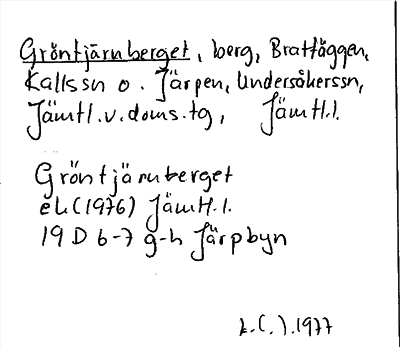 Gröntjärnberget, berg, Brattåggen,
Kallssn o. Järpen, Undersåkerssn,
Jämtl.v.doms.tg, Jämtl.l.
Gröntjärnberget
ek(1976) Jämtl.l.
19 D 6-7 g-h Järpbyn
L.( ).1977